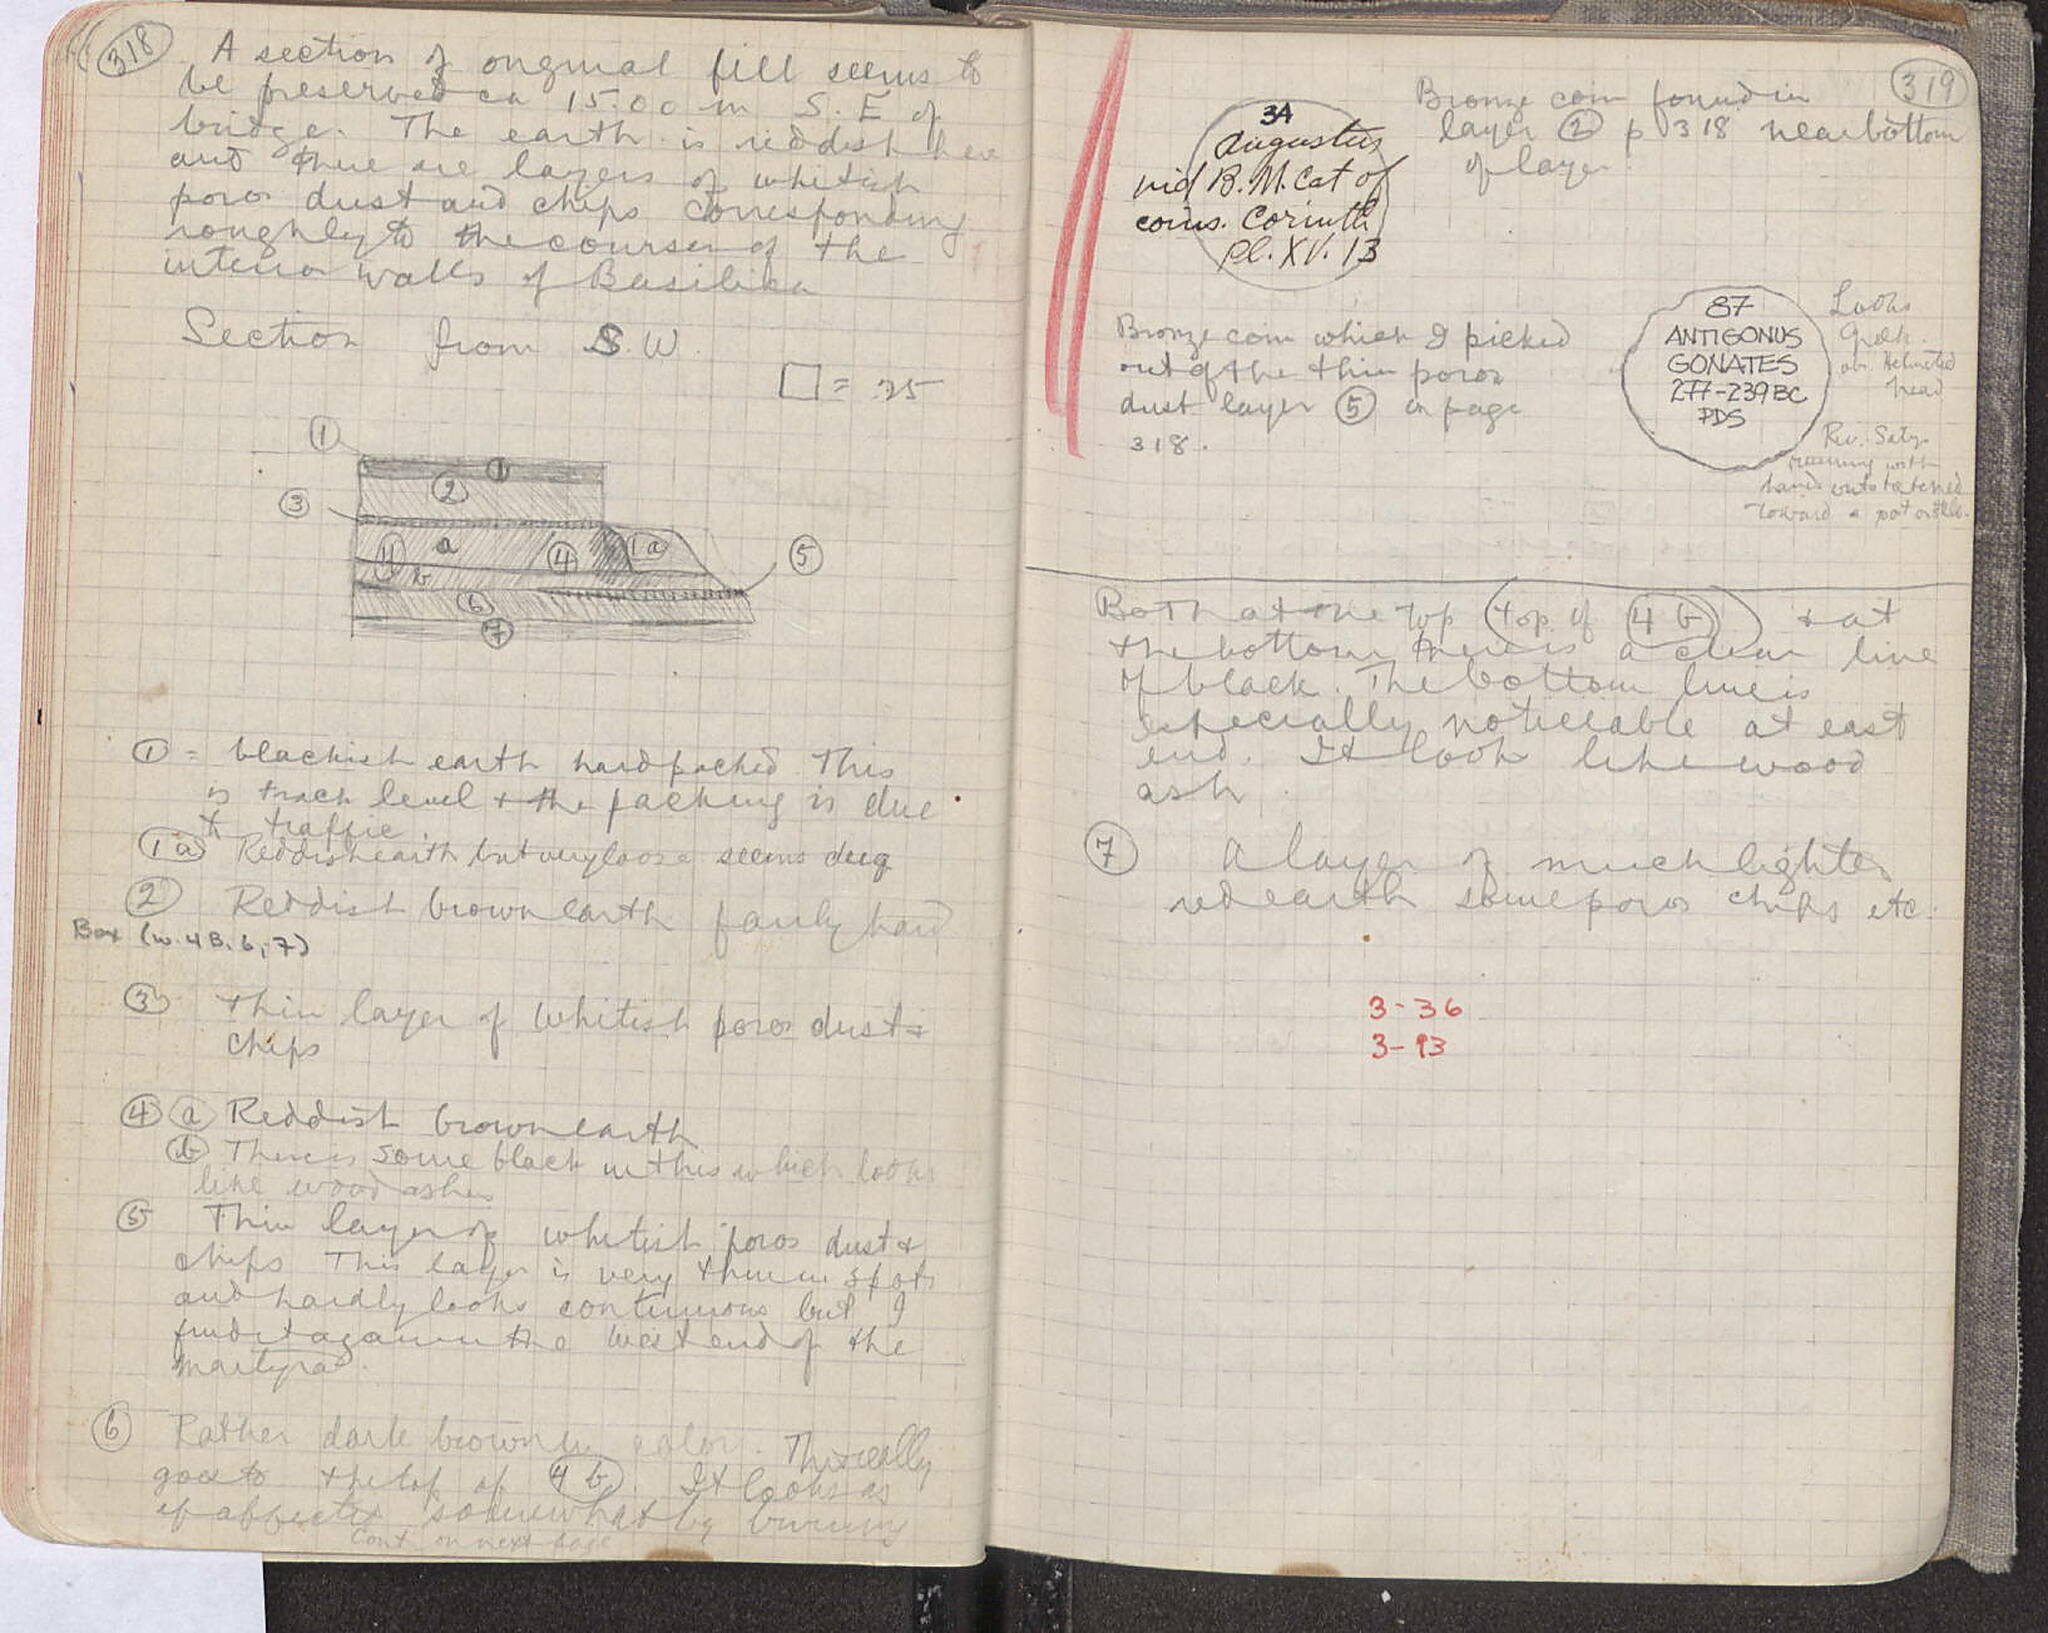 318
A section of original fill seems to
be preserved ca 15.00 m S.E of
bridge. The earth is reddish here
and there are layers of whitish
poros dust and chips corresponding
roughly to the courses of the
interior walls of Basilica
Section from S.W.
□ = .25
1
1
2
3
a
4
4
1a
5
b
6
7
1 = blackish earth hard packed. This
is track level + the packing is due
to traffic.
1a Reddish earth but very loose seems dug
2 Reddish brown earth fairly hard
Box (w. 4B, 6, 7)
3 Thin layer of whitish poros dust +
chips
4 a Reddish brown earth
b There is some black in this which looks
like wood ashes
5 Thin layer of whitish poros dust +
chips This layer is very thin in spots
and hardly looks continuous but I
find it again in the West end of the
martyra.
6 Rather dark brown in color. This really
goes to the top of 4 b. It looks as
if affected somewhat by burning
Cont. on next page
319
Bronze coin found in
layer 2 p 318 near bottom
of layer.
3A
Augustus
vid B.M.Cat of
coins. Corinth
Pl. XV. 13
Bronze coin which I picked
out of the thin poros
dust layer 5 on page
318.
87
ANTIGONUS
GONATES
277-239 BC
PDS
Looks
Greek.
ob. Helmeted
head
Rev. Satyr
running with
hands outstretched
toward a pot or
Both at the top (top of 4 b) + at
the bottom there is a clear line
of black. The bottom line is
especially noticeable at east
end. It look like wood
ash.
7 A layer of much lighter
red earth some poros chips etc.
3-36
3-93